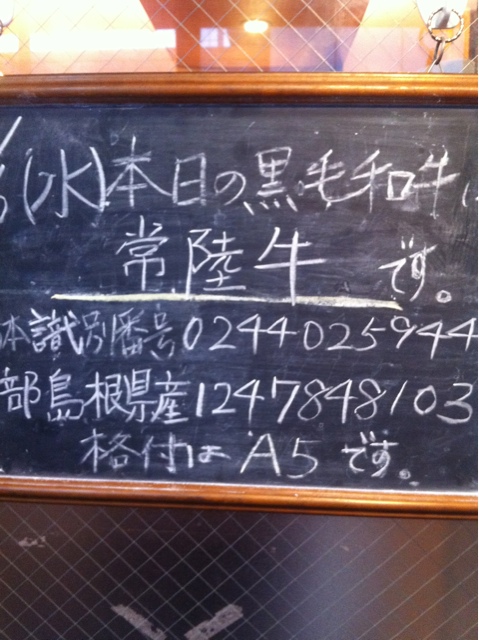 (水)本日の黒毛和牛は
常陸牛です。
体識別番号0244025944
部島根県産1247848103
格付はA5です。